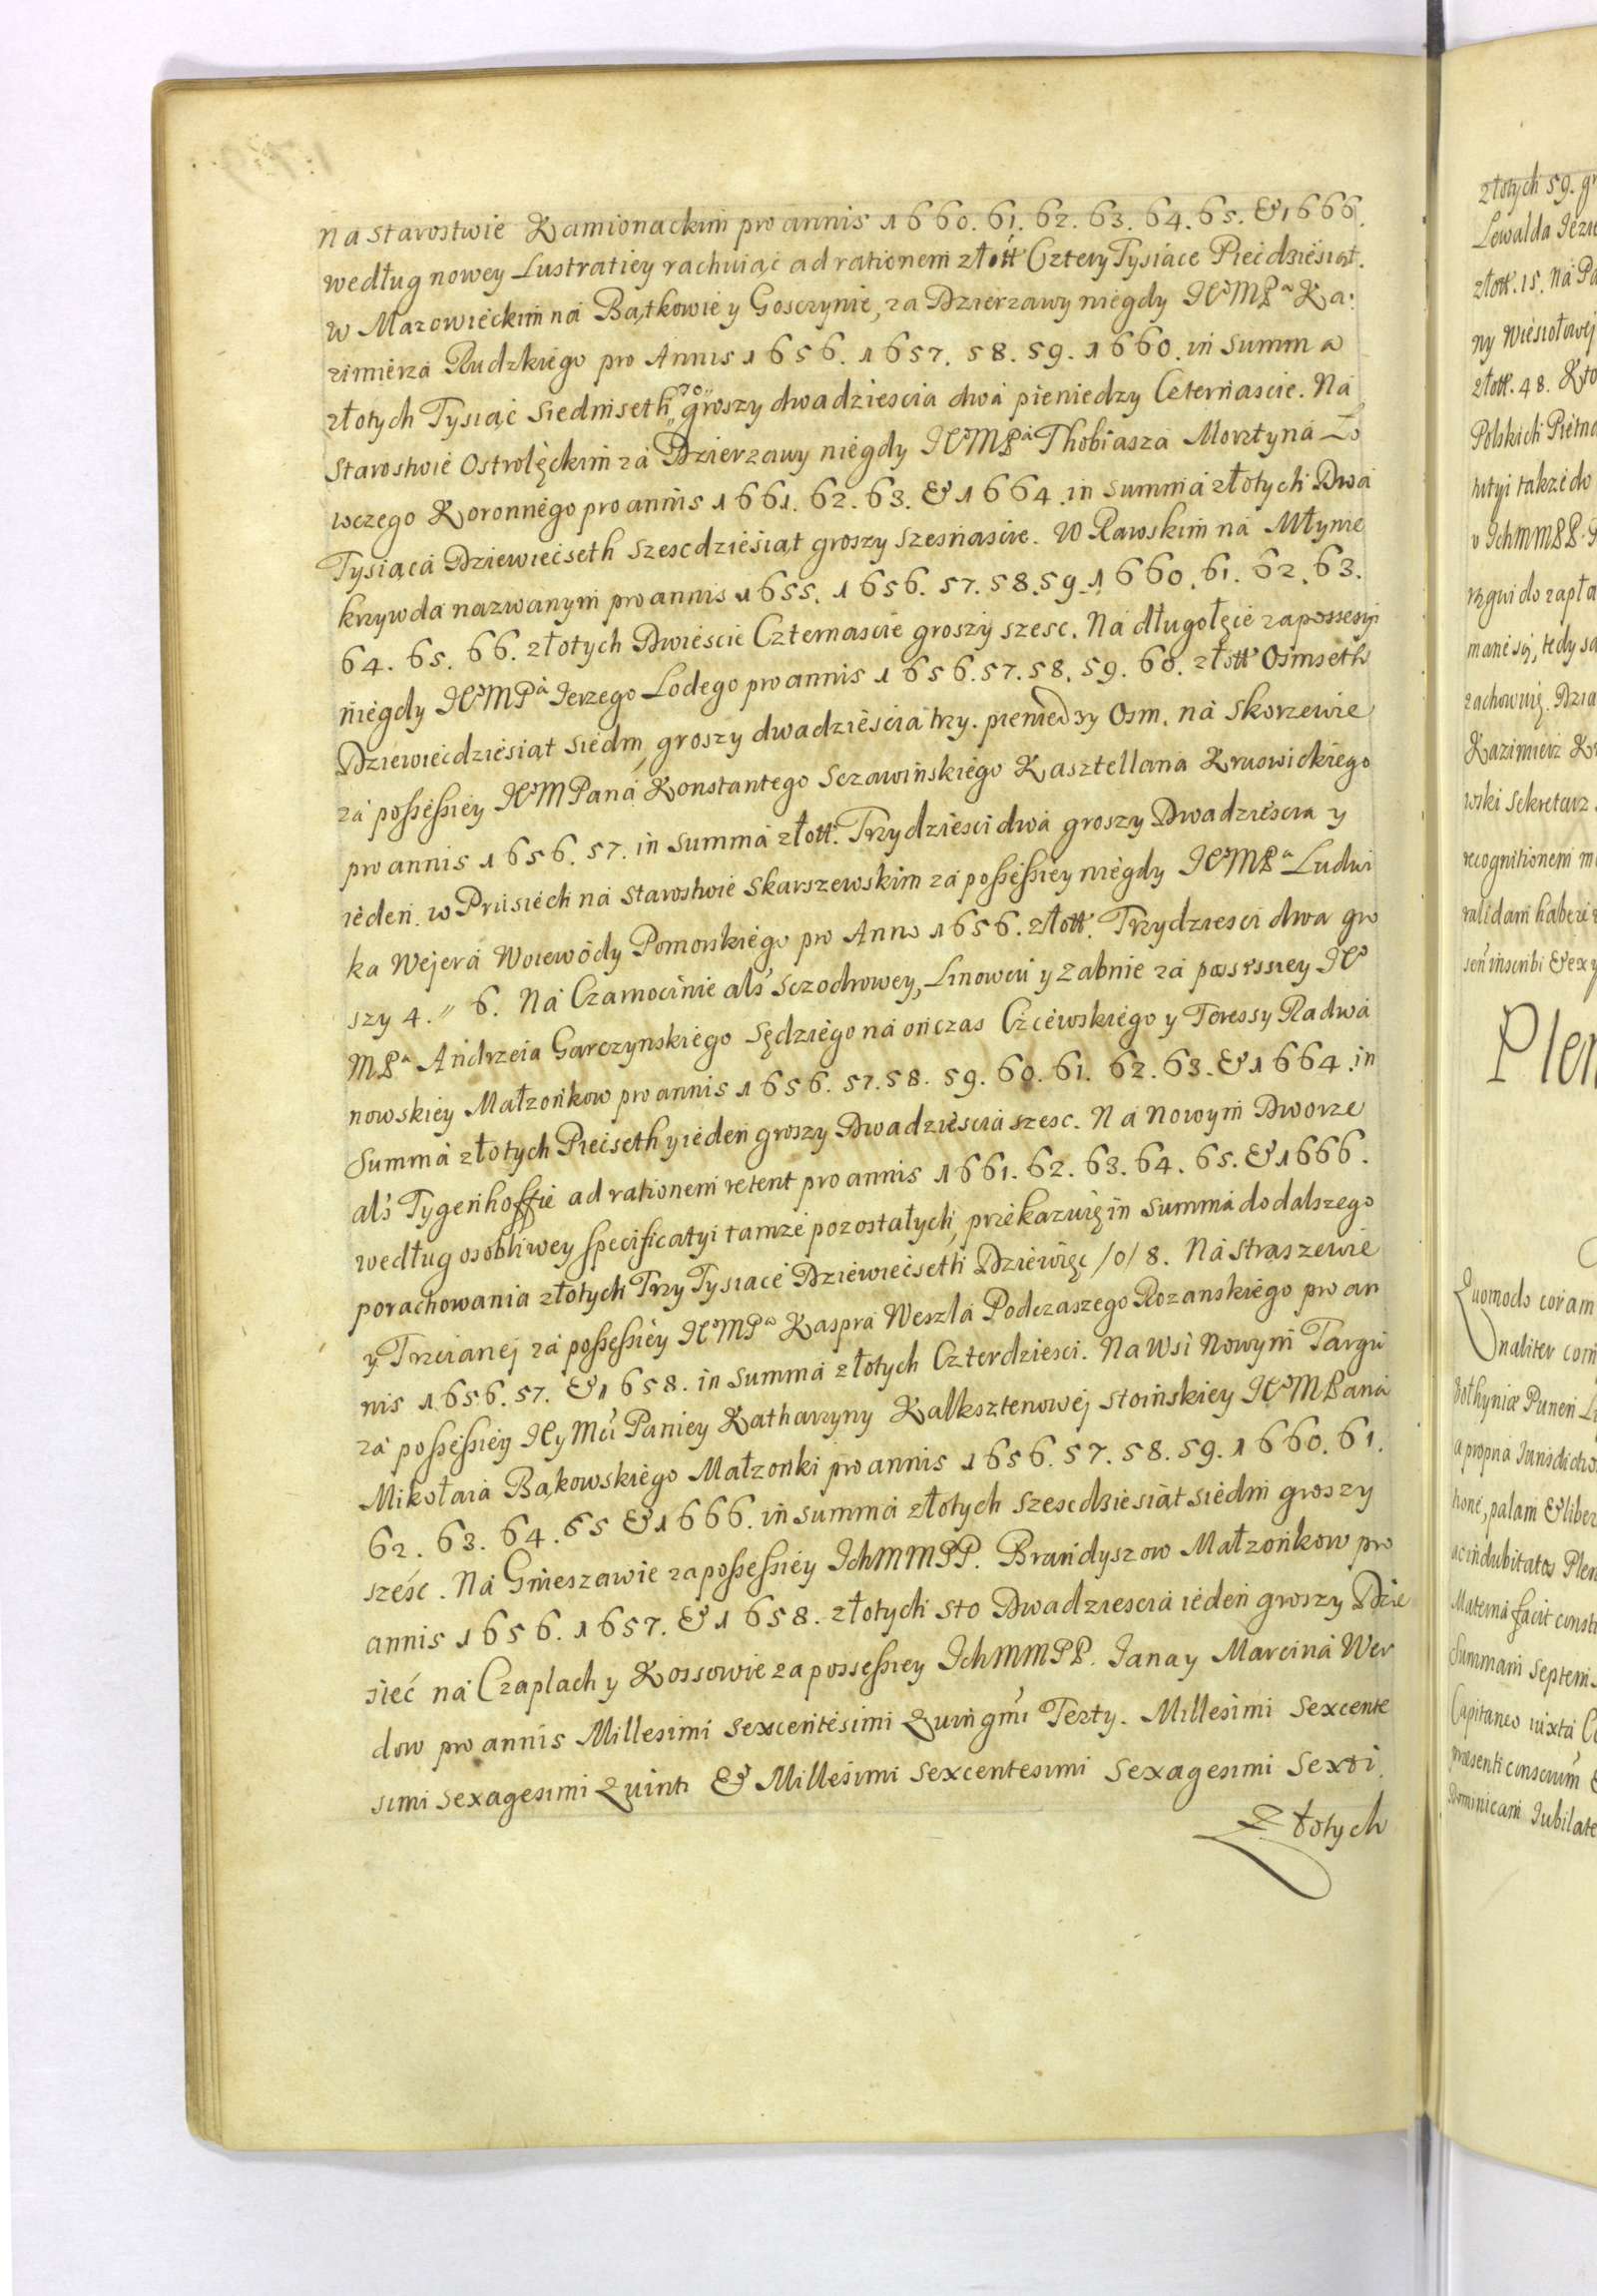 na starostwie Kamionackim pro annis 1660. 61. 62. 63. 64. 65. & 1666.
według nowey Lustratiey rachuiąc ad rationem złott Cztery Tysiące Piećdziesiąt.
w Mazowieckim na Bątkowie y Gosczynie, za Dzierzawy niegdy JEoMPa Ka:
zimierza Rudzkiego pro Annis 1656. 1657. 58. 59. 1660. in Summa
złotych Tysiąć Siedmseth 70 groszy dwadziescia dwa pieniedzy Ceternascie. Na
Starostwie Ostrolęckim za Dzierzawy niegdy JEoMPa Thobiasza Morztyna Lo
wczego Koronnego pro annis 1661. 62. 63. & 1664. in Summa złotych Dwa
Tysiąca Dziewiećseth Szescdziesiąt groszy Szesnascie. W Rawskim na Młynie
krzywda nazwanym pro annis 1655. 1656. 57. 58. 59. 1660. 61. 62. 63.
64. 65. 66. złotych Dwiescie Czternascie groszy szesc. Na długołęcie za possessyi
niegdy JEoMPa Jerzego Lodego pro annis 1656. 57. 58. 59. 60. złott Osmseth
Dziewiećdziesiąt Siedm, groszy dwadziescia trzy. pieniedzy Osm. na Skorzewie
za possessiey JEoMPana Konstantego Sczawińskiego Kasztellana Kruswickiego
pro annis 1656. 57. in Summa złott. Trzydziesci dwa groszy Dwadziescia y
ieden. w Prusiech na Starostwie Skarszewskim za possessiey niegdy JEoMPa Ludwi
ka Wejera Woiewody Pomorskiego pro Anno 1656. złott. Trzydziesci dwa gro
szy 4. " 6. Na Czarnocinie als Sczodrowey, Linowcu y Zabnie za possessiey JEo
MPa Andrzeia Garczynskiego Sędziego na ończas Czcewskiego y Teressy Radwa
nowskiey Małzonkow pro annis 1656. 57. 58. 59. 60. 61. 62. 63. & 1664. in
Summa złotych Piećseth y ieden groszy Dwadziescia szesc. Na nowym Dworze
als Tygenhoffie ad rationem retent pro annis 1661. 62. 63. 64. 65. & 1666.
według osobliwey specificatyi tamze pozostałych, przekazuię in Summa do dalszego
porachowania złotych Trzy Tysiące Dziewiećseth Dziewięc /0/ 8. Na Straszewie
y Trzcianej za possessiey JEoMPa Kaspra Weszla Podczaszego Rozanskiego pro an
nis 1656. 57. & 1658. in Summa złotych Czterdziesci. Na Wsi Nowym Targu
za possessiey JEy Mci Paniey Katharzyny Kalksztenowej Stoińskiey JEoMPana
Mikołaia Bąkowskiego Małzonki pro annis 1656. 57. 58. 59. 1660. 61.
62. 63. 64. 65 & 1666. in Summa złotych szescdziesiąt siedm groszy
sześc. Na Gnieszewie za possessiey JchMMPP. Brandyszow Małzonkow pro
annis 1656. 1657. & 1658. złotych sto Dwadziescia ieden groszy Dzie
sieć na Czaplach y Kossowie za possessiey JchMMPP. Jana y Marcina Wer
dow pro annis Millesimi Sexcentesimi Quingmi Terty. Millesimi Sexcente
simi Sexagesimi Quinti & Millesimi Sexcentesimi Sexagesimi Sexti.
Złotych
złotych 59. gr
Lewalda
złott. 15. Na
ny Wiesiołowej
złott. 48.
Polskich
hutyi takze do
v JchMMPP.
do zapła
manie się, tedy
zachowuię.
Kazimierz
wski Sekretarz
recognitionem
validam haberi
inscribi & ex
Plen
Quomodo coram
naliter
a propria Jurisdictio
palam & liber
ac indubitatos Plen
Materna facit consti
Summam Septem
Capitaneo iuxta
præsenti
Dominicam Jubilate